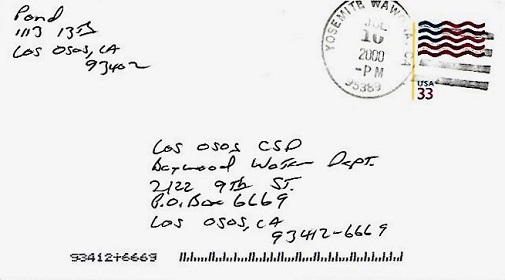 Pond
1113 13th
Los Osos, CA
93402
YOSEMITE WAWONA, CA
JUL
10
2000
-PM
95389
USA
33
Los Osos CSD
Baywood Water Dept.
2122 9th St.
P.O. Box 6669
Los Osos, CA
93412-6669
93412+6669